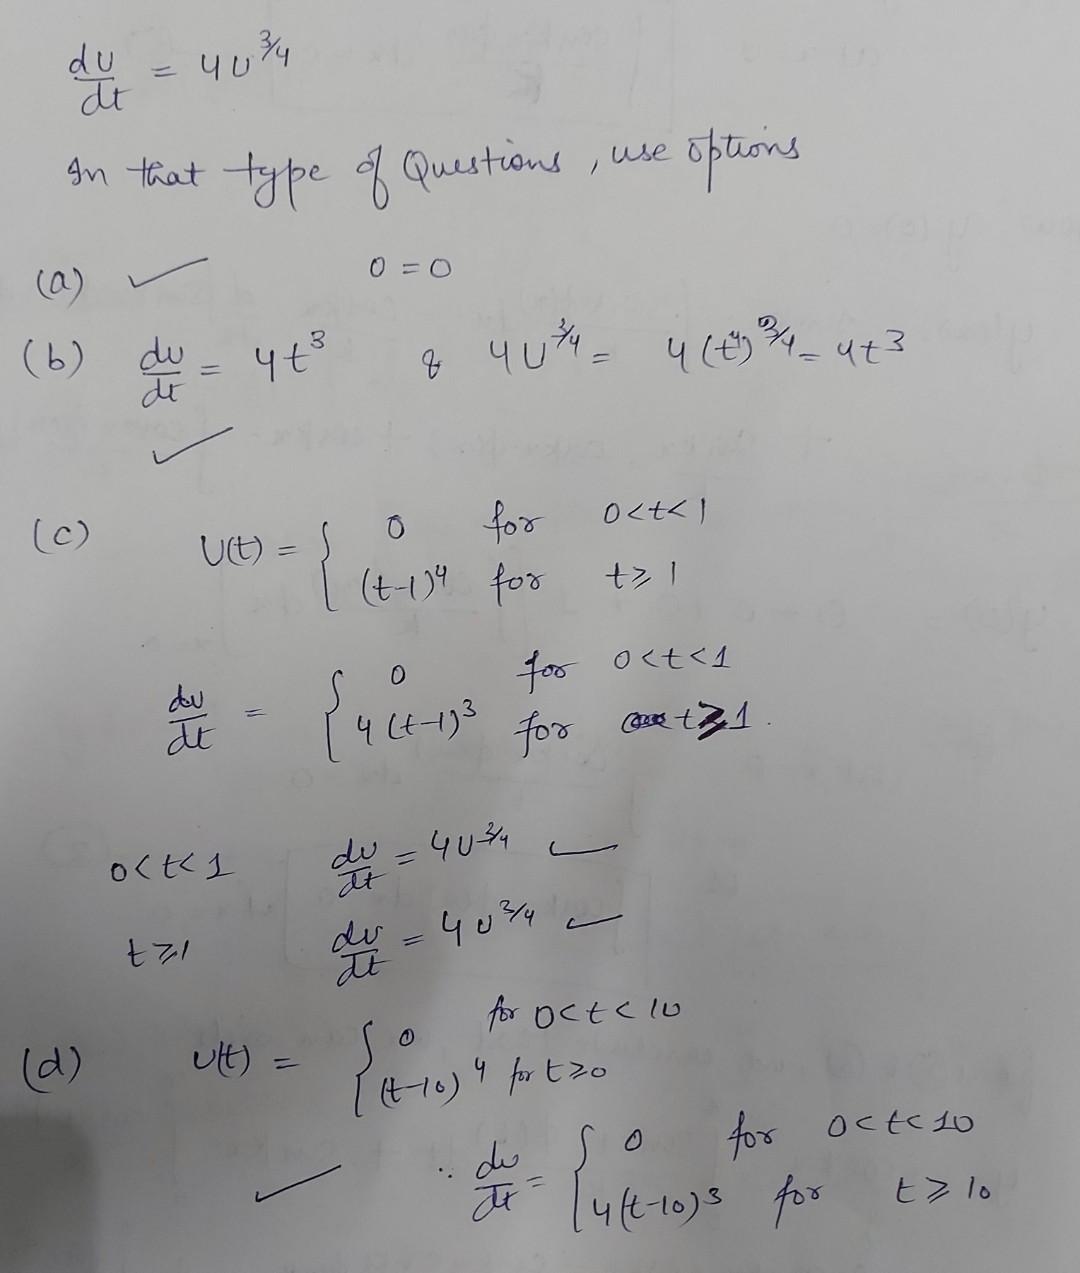 du/dt = 4u^3/4
In that type of Questions, use options
(a) ✓ 0 = 0
(b) du/dt = 4t^3 & 4u^3/4 = 4(t^4)^3/4 = 4t^3
✓
(c) U(t) = { 0 for 0<t<1
(t-1)^4 for t≥1
du/dt = { 0 for 0<t<1
4(t-1)^3 for t≥1.
0<t<1 du/dt = 4u^3/4 ✓
t≥1 du/dt = 4u^3/4 ✓
(d) U(t) = { 0 for 0<t<10
(t-10)^4 for t≥0
✓ ∵ du/dt = { 0 for 0<t<10
4(t-10)^3 for t≥10